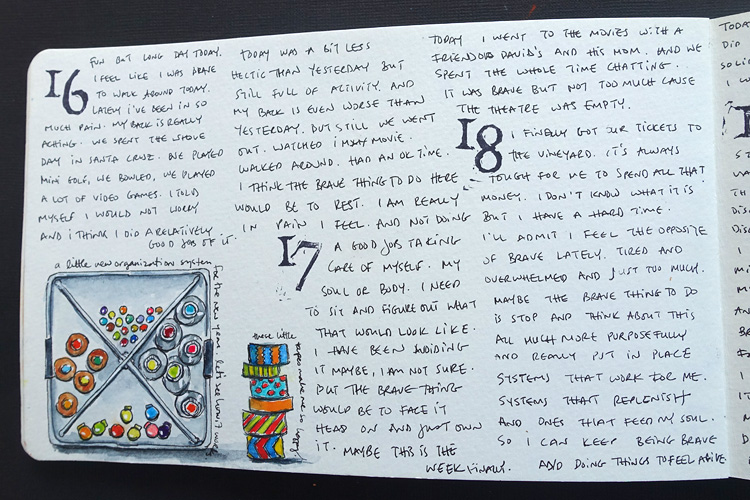 16
FUN BUT LONG DAY TODAY.
I FEEL LIKE I WAS BRAVE
TO WALK AROUND TODAY.
LATELY I'VE BEEN IN SO
MUCH PAIN. MY BACK IS REALLY
ACHING. WE SPENT THE WHOLE
DAY IN SANTA CRUZ. WE PLAYED
MINI GOLF, WE BOWLED, WE PLAYED
A LOT OF VIDEO GAMES. I TOLD
MYSELF I WOULD NOT WORRY
AND I THINK I DID A RELATIVELY
GOOD JOB OF IT.
a little new organization system
for the new year. let's see how it works.
TODAY WAS A BIT LESS
HECTIC THAN YESTERDAY BUT
STILL FULL OF ACTIVITY. AND
MY BACK IS EVEN WORSE THAN
YESTERDAY. BUT STILL WE WENT
OUT. WATCHED MOVIE.
WALKED AROUND. HAD AN OK TIME.
I THINK THE BRAVE THING TO DO HERE
WOULD BE TO REST. I AM REALLY
IN PAIN I FEEL. AND NOT DOING
17
A GOOD JOB TAKING
CARE OF MYSELF. MY
SOUL OR BODY. I NEED
TO SIT AND FIGURE OUT WHAT
THAT WOULD LOOK LIKE.
I HAVE BEEN AVOIDING
IT MAYBE, I AM NOT SURE.
BUT THE BRAVE THING
WOULD BE TO FACE IT
HEAD ON AND JUST OWN
IT. MAYBE THIS IS THE
WEEK FINALLY.
these little
tapes make me so happy
TODAY I WENT TO THE MOVIES WITH A
FRIEND OF DAVID'S AND HIS MOM. AND WE
SPENT THE WHOLE TIME CHATTING.
IT WAS BRAVE BUT NOT TOO MUCH CAUSE
THE THEATRE WAS EMPTY.
18
I FINALLY GOT OUR TICKETS TO
THE VINEYARD. IT'S ALWAYS
TOUGH FOR ME TO SPEND ALL THAT
MONEY. I DON'T KNOW WHAT IT IS
BUT I HAVE A HARD TIME.
I'LL ADMIT I FEEL THE OPPOSITE
OF BRAVE LATELY. TIRED AND
OVERWHELMED AND JUST TOO MUCH.
MAYBE THE BRAVE THING TO DO
IS STOP AND THINK ABOUT THIS
ALL MUCH MORE PURPOSEFULLY
AND REALLY PUT IN PLACE
SYSTEMS THAT WORK FOR ME.
SYSTEMS THAT REPLENISH
AND ONES THAT FEED MY SOUL.
SO I CAN KEEP BEING BRAVE
AND DOING THINGS TO FEEL ALIVE.
TODAY
DID